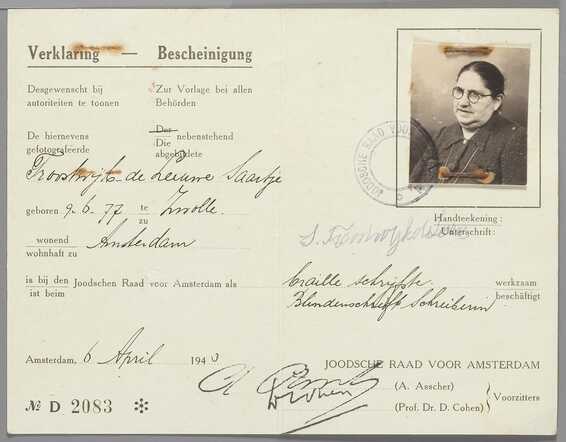 Verklaring — Bescheinigung
Desgewenscht bij autoriteiten te toonen
Zur Vorlage bei allen Behörden
De hiernevens gefotografeerde
Der Die nebenstehend abgebildete
Troostwijk-de Leeuwe Saartje
geboren 9-6-77 te zu Zwolle
wonend wohnhaft zu Amsterdam
is bij den ist beim Joodschen Raad voor Amsterdam als
JOODSCHE RAAD VOOR
Handteekening :
Unterschrift :
braille schrijfster werkzaam
Blindenschrift Schreiberin beschäftigt
Amsterdam, 6 April 1943
JOODSCHE RAAD VOOR AMSTERDAM
(A. Asscher)
(Prof. Dr. D. Cohen)
Voorzitters
№ D 2083 ✻